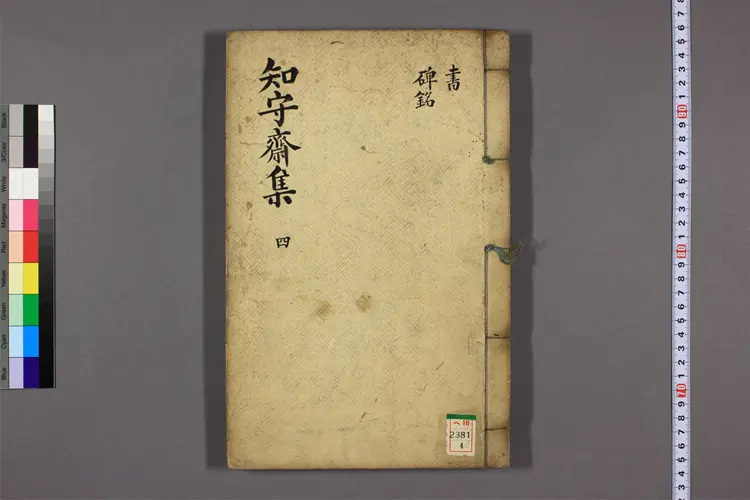 書
碑銘
知守齋集
四
ヘ16
2381
4
Black
3/Color
White
Magenta
Red
Yellow
Green
Cyan
Blue
90
80
70